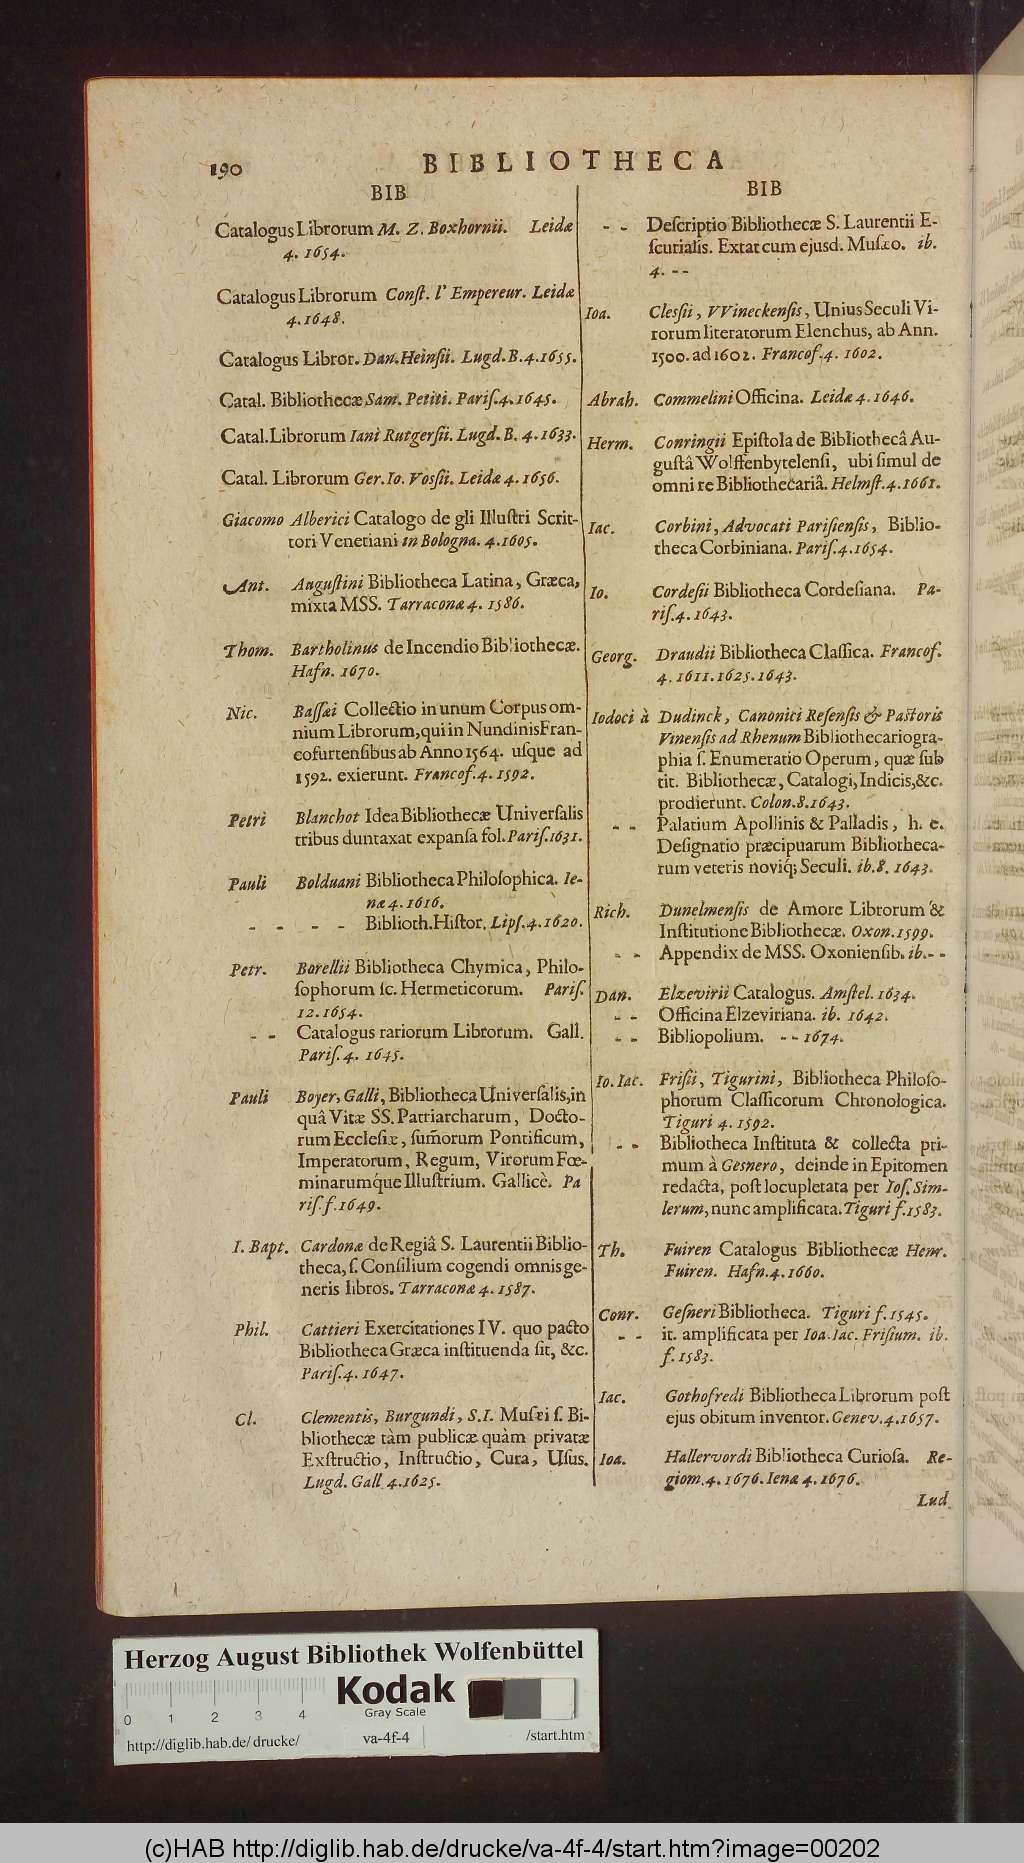 190
BIBLIOTHECA
BIB
Catalogus Librorum M. Z. Boxhornii. Leidæ
4. 1654.
Catalogus Librorum Const. l' Empereur. Leidæ
4. 1648.
Catalogus Libror. Dan. Heinsii. Lugd. B. 4. 1655.
Catal. Bibliothecæ Sam. Petiti. Paris. 4. 1645.
Catal. Librorum Iani Rutgersii. Lugd. B. 4. 1633.
Catal. Librorum Ger. Io. Vossii. Leidæ 4. 1656.
Giacomo Alberici Catalogo de gli Illustri Scrit-
tori Venetiani in Bologna. 4. 1605.
Ant. Augustini Bibliotheca Latina, Græca,
mixta MSS. Tarraconæ 4. 1586.
Thom. Bartholinus de Incendio Bibliothecæ.
Hafn. 1670.
Nic. Bassæi Collectio in unum Corpus om-
nium Librorum, qui in Nundinis Fran-
cofurtensibus ab Anno 1564. usque ad
1592. exierunt. Francof. 4. 1592.
Petri Blanchot Idea Bibliothecæ Universalis
tribus duntaxat expansa fol. Paris. 1631.
Pauli Bolduani Bibliotheca Philosophica. Ie-
næ 4. 1616.
- - - - Biblioth. Histor. Lips. 4. 1620.
Petr. Borellii Bibliotheca Chymica, Philo-
sophorum sc. Hermeticorum. Paris.
12. 1654.
- - Catalogus rariorum Librorum. Gall.
Paris. 4. 1645.
Pauli Boyer, Galli, Bibliotheca Universalis, in
quâ Vitæ SS. Patriarcharum, Docto-
rum Ecclesiæ, sum̃orum Pontificum,
Imperatorum, Regum, Virorum Fœ-
minarumque Illustrium. Gallicè. Pa
ris. f. 1649.
I. Bapt. Cardonæ de Regiâ S. Laurentii Biblio-
theca, s. Consilium cogendi omnis ge-
neris libros. Tarraconæ 4. 1587.
Phil. Cattieri Exercitationes IV. quo pacto
Bibliotheca Græca instituenda sit, &c.
Paris. 4. 1647.
Cl. Clementis, Burgundi, S. I. Musæi s. Bi-
bliothecæ tàm publicæ quàm privatæ
Exstructio, Instructio, Cura, Usus.
Lugd. Gall. 4. 1625.
BIB
- - Descriptio Bibliothecæ S. Laurentii E-
scurialis. Extat cum ejusd. Musæo. ib.
4. - -
Ioa. Clessii, VVineckensis, Unius Seculi Vi-
rorum literatorum Elenchus, ab Ann.
1500. ad 1602. Francof. 4. 1602.
Abrah. Commelini Officina. Leidæ 4. 1646.
Herm. Conringii Epistola de Bibliothecâ Au-
gustâ Wolffenbytelensi, ubi simul de
omni re Bibliothecariâ. Helmst. 4. 1661.
Iac. Corbini, Advocati Parisiensis, Biblio-
theca Corbiniana. Paris. 4. 1654.
Io. Cordesii Bibliotheca Cordesiana. Pa-
ris. 4. 1643.
Georg. Draudii Bibliotheca Classica. Francof.
4. 1611. 1625. 1643.
Iodoci à Dudinck, Canonici Resensis & Pastoris
Vinensis ad Rhenum Bibliothecariogra-
phia s. Enumeratio Operum, quæ sub
tit. Bibliothecæ, Catalogi, Indicis, &c.
prodierunt. Colon. 8. 1643.
- - Palatium Apollinis & Palladis, h. e.
Designatio præcipuarum Bibliotheca-
rum veteris noviq; Seculi. ib. 8. 1643.
Rich. Dunelmensis de Amore Librorum &
Institutione Bibliothecæ. Oxon. 1599.
- - Appendix de MSS. Oxoniensib. ib. - -
Dan. Elzevirii Catalogus. Amstel. 1634.
- - Officina Elzeviriana. ib. 1642.
- - Bibliopolium. - - 1674.
Io. Iac. Frisii, Tigurini, Bibliotheca Philoso-
phorum Classicorum Chronologica.
Tiguri 4. 1592.
- - Bibliotheca Instituta & collecta pri-
mum à Gesnero, deinde in Epitomen
redacta, post locupletata per Ios. Sim-
lerum, nunc amplificata. Tiguri f. 1583.
Th. Fuiren Catalogus Bibliothecæ Henr.
Fuiren. Hafn. 4. 1660.
Conr. Gesneri Bibliotheca. Tiguri f. 1545.
- - it. amplificata per Ioa. Iac. Frisium. ib.
f. 1583.
Iac. Gothofredi Bibliotheca Librorum post
ejus obitum inventor. Genev. 4. 1657.
Ioa. Hallervordi Bibliotheca Curiosa. Re-
giom. 4. 1676. Ienæ 4. 1676.
Lud
Herzog August Bibliothek Wolfenbüttel
Kodak
Gray Scale
0 1 2 3 4
http://diglib.hab.de/drucke/ va-4f-4 /start.htm
(c)HAB http://diglib.hab.de/drucke/va-4f-4/start.htm?image=00202